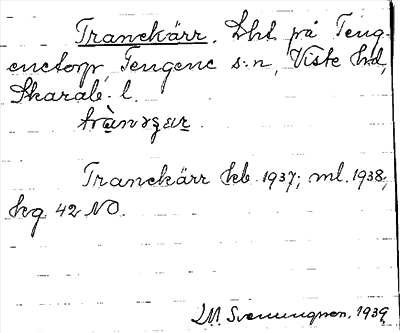 Tranekärr. Lht. på Teng-
enetorp, Tengene s:n, Viste hd,
Skarab. l.

Tranekärr hb. 1937; ml. 1938,
kg 42 NO.
L.M. Svenungsson. 1939